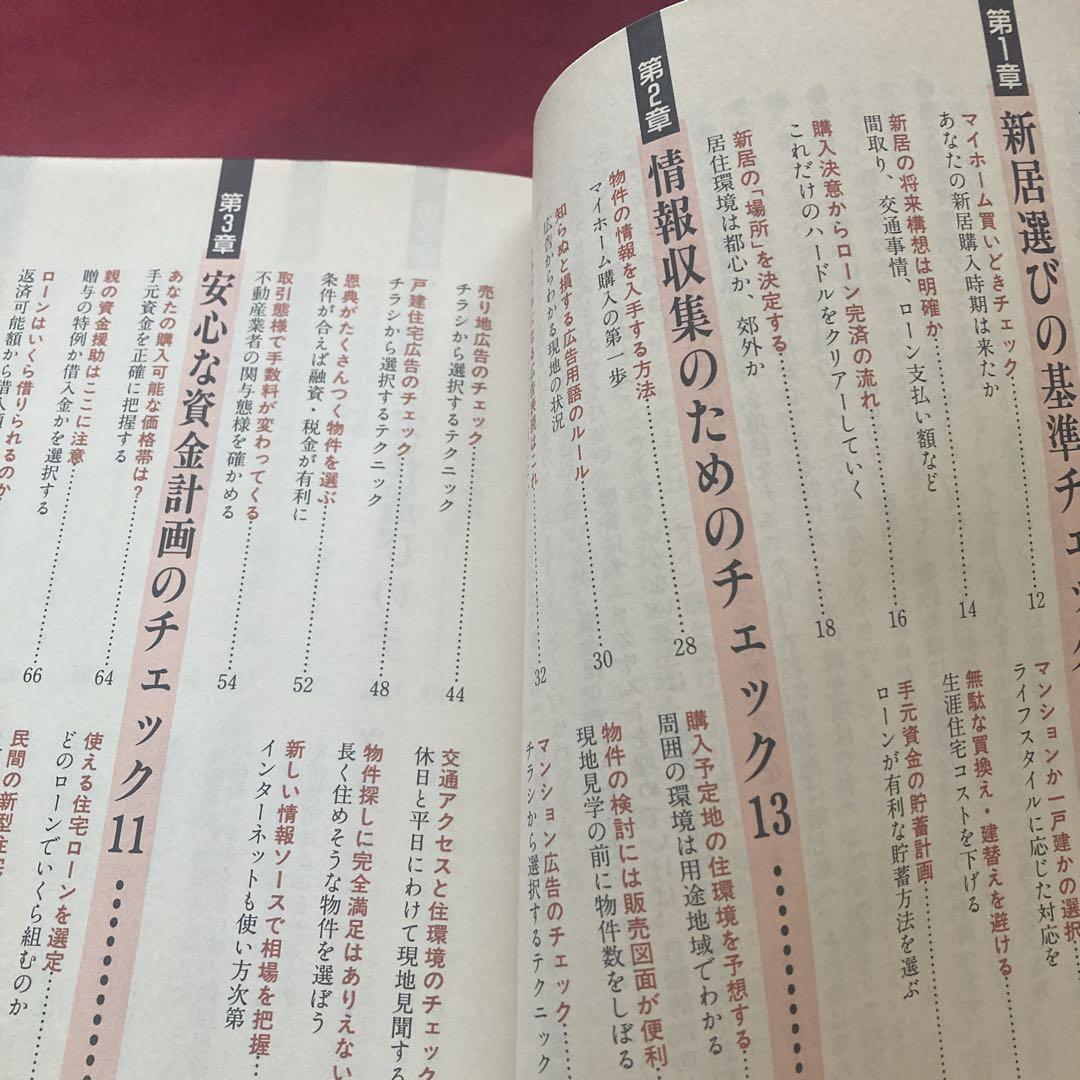 第1章
新居選びの基準チェック
マイホーム買いどきチェック……12
あなたの新居購入時期は来たか
新居の将来構想は明確か……14
間取り、交通事情、ローン支払い額など
購入決意からローン完済の流れ……16
これだけのハードルをクリアーしていく
新居の「場所」を決定する……18
居住環境は都心か、郊外か
マンションか一戸建かの選択
ライフスタイルに応じた対応を
無駄な買換え・建替えを避ける……
生涯住宅コストを下げる
手元資金の貯蓄計画……
ローンが有利な貯蓄方法を選ぶ
第2章
情報収集のためのチェック13……
物件の情報を入手する方法……28
マイホーム購入の第一歩
知らぬと損する広告用語のルール……30
広告からわかる現地の状況
32
購入予定地の住環境を予想する……
周囲の環境は用途地域でわかる
物件の検討には販売図面が便利
現地見学の前に物件数をしぼる
マンション広告のチェック……
チラシから選択するテクニック
売り地広告のチェック……44
チラシから選択するテクニック
戸建住宅広告のチェック……48
チラシから選択するテクニック
恩典がたくさんつく物件を選ぶ……52
条件が合えば融資・税金が有利に
取引態様で手数料が変わってくる……54
不動産業者の関与態様を確かめる
交通アクセスと住環境のチェック
休日と平日にわけて現地見聞する
物件探しに完全満足はありえない
長く住めそうな物件を選ぼう
新しい情報ソースで相場を把握……
インターネットも使い方次第
第3章
安心な資金計画のチェック11……
あなたの購入可能な価格帯は?……64
手元資金を正確に把握する
親の資金援助はここに注意……66
贈与の特例か借入金かを選択する
ローンはいくら借りられるのか
返済可能額から借入
使える住宅ローンを選定……
どのローンでいくら組むのか
民間の新型住宅